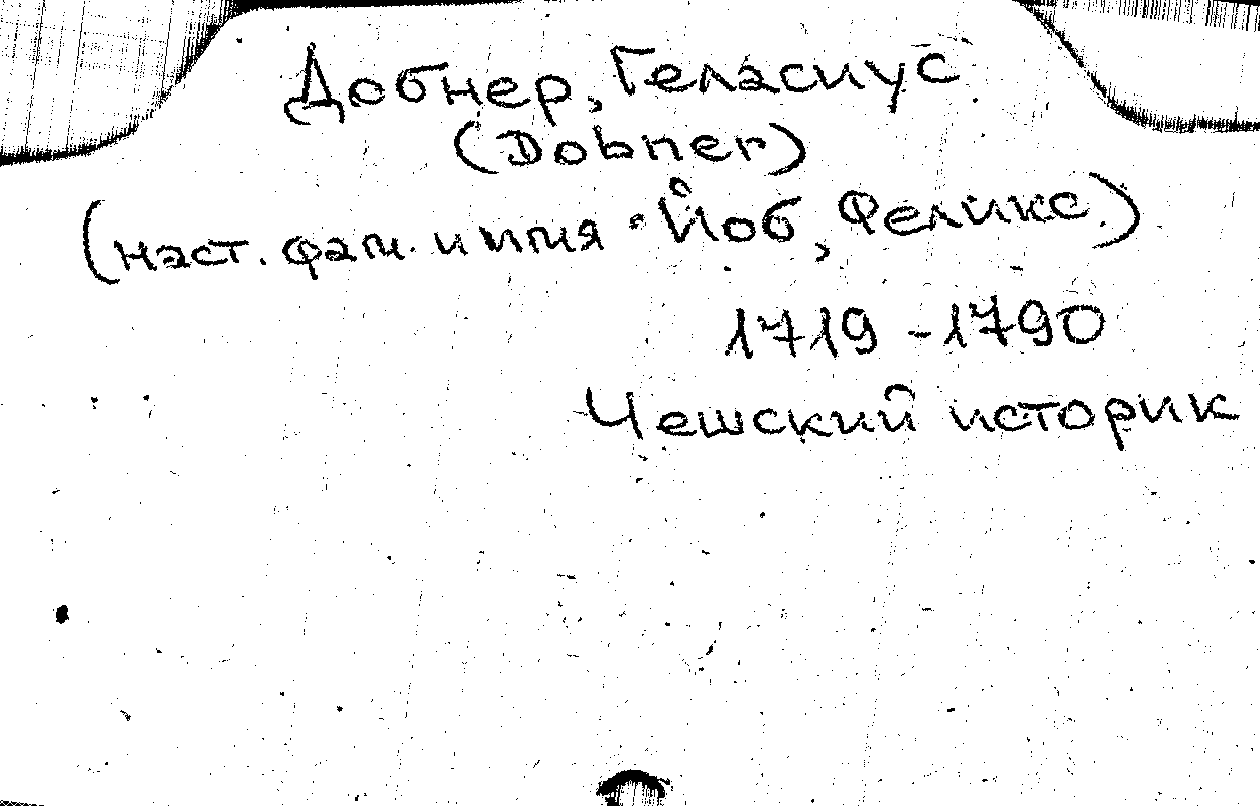 Добнер, Геласиус
(Dobner)
(наст. фам. и имя · Йоб, Феликс.)
1719 - 1790
Чешский историк